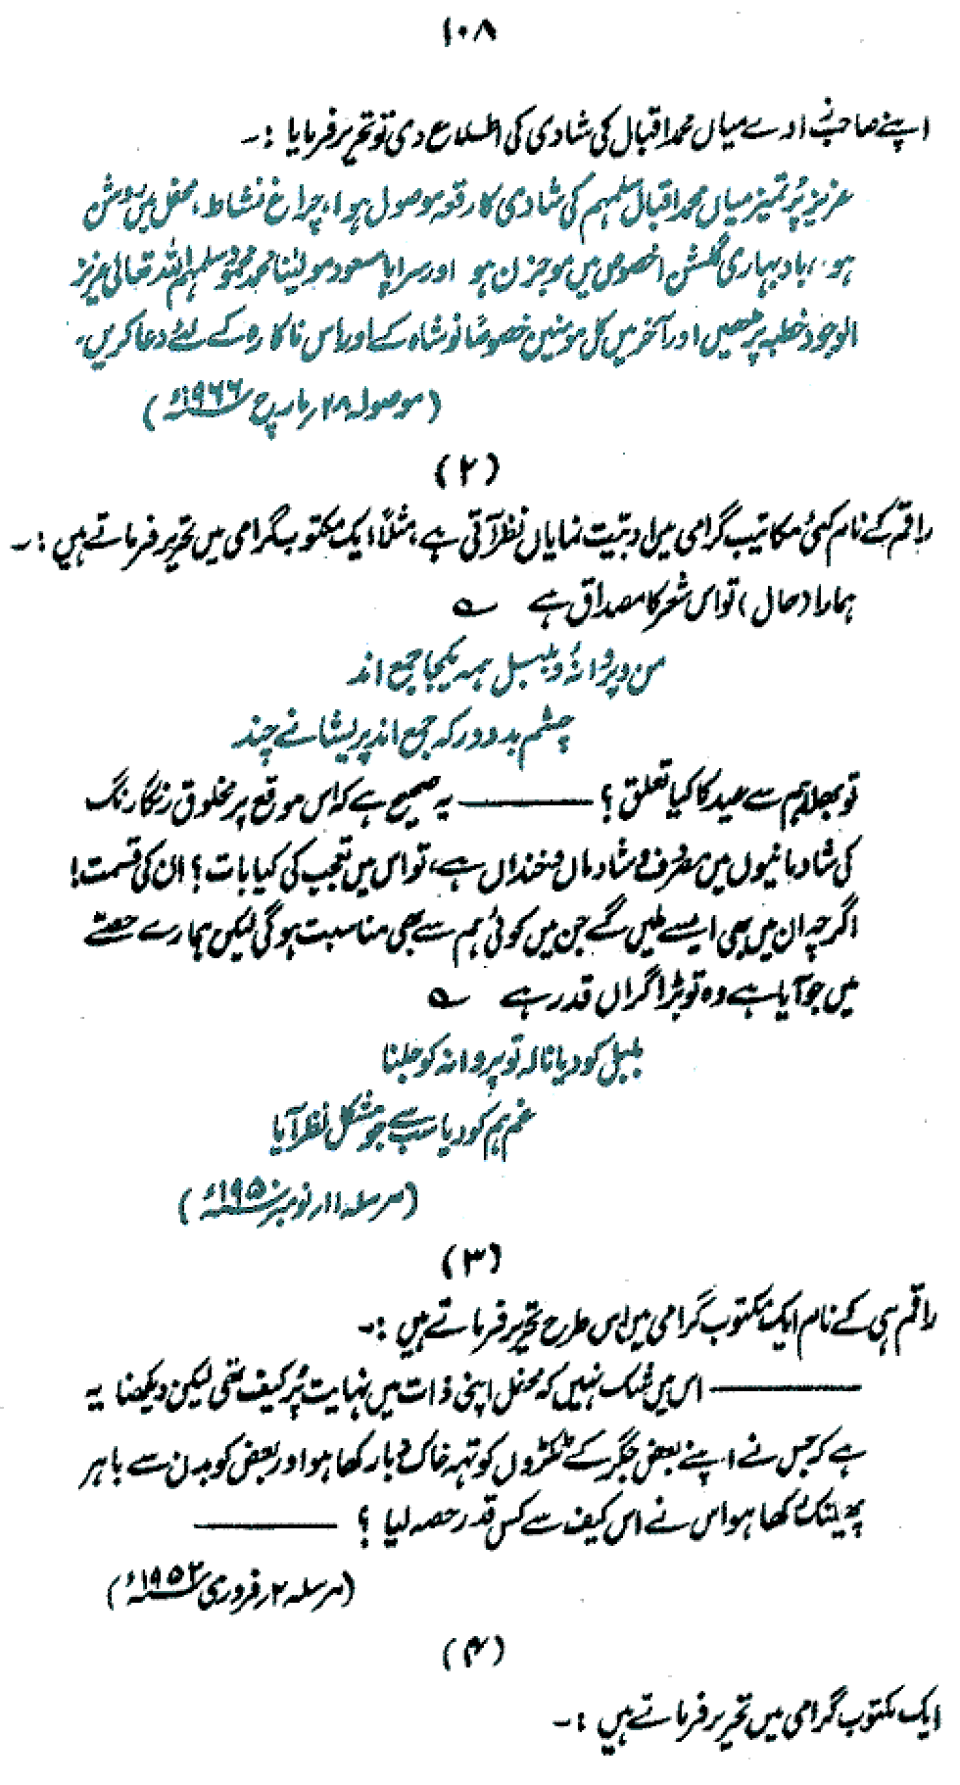 ۱۰۸
اپنے صاحبزادے میاں محمد اقبال کی شادی کی اطلاع دی تو تحریر فرمایا :۔
عزیز پُر تمیز میاں محمد اقبال سلمہم کی شادی کا رقعہ موصول ہوا، چراغ نشاط، محفل میں روشن
ہو، باد بہاری گلشن اخصوص میں موجزن ہو اور سراپا مسعود مولینا محمد محمود سلمہم اللہ تعالیٰ عزیز
الوجود خطبہ پڑھیں اور آخر میں کل مومنین خصوصًا نوشاہ کے اور اس ناکارہ کے لئے دعا کریں۔
(موصولہ ۲۸؍مارچ ۱۹۶۶ء)
(۲)
راقم کے نام کئی مکاتیب گرامی میں ادبیّت نمایاں نظر آتی ہے، مثلاً ایک مکتوب گرامی میں تحریر فرماتے ہیں :۔
ہمارا (حال) تو اس شعر کا مصداق ہے ؎
من و پروانۂ و بلبل ہمہ یکجا جمع اند
چشم بد دور کہ جمع اند پریشانے چند
تو بھلا ہم سے عید کا کیا تعلق ؟ ——— یہ صحیح ہے کہ اس موقع پر مخلوق رنگا رنگ
کی شادمانیوں میں مصروف و شاد ماں و خنداں ہے، تو اس میں تعجب کی کیا بات ؟ ان کی قسمت!
اگرچہ ان میں بھی ایسے ملیں گے جن میں کوئی ہم سے بھی مناسبت ہوگی لیکن ہمارے حصّے
میں جو آیا ہے وہ تو بڑا گراں قدر ہے ؎
بلبل کو دیا نالہ تو پروانہ کو جلنا
غم ہم کو دیا سب سے جو مشکل نظر آیا
(مرسلہ ۱۱؍نومبر ۱۹۵۰ء)
(۳)
راقم ہی کے نام ایک مکتوب گرامی میں اس طرح تحریر فرماتے ہیں :۔
——— اس میں شک نہیں کہ محفل اپنی ذات میں نہایت پُر کیف تھی لیکن دیکھنا یہ
ہے کہ جس نے اپنے بعض جگر کے ٹکڑوں کو تہہ خاک دبا رکھا ہو اور بعض کو بدن سے باہر
پھینک رکھا ہو اس نے اس کیف سے کس قدر حصہ لیا ؟ ———
(مرسلہ ۲؍فروری ۱۹۵۲ء)
(۴)
ایک مکتوب گرامی میں تحریر فرماتے ہیں :۔